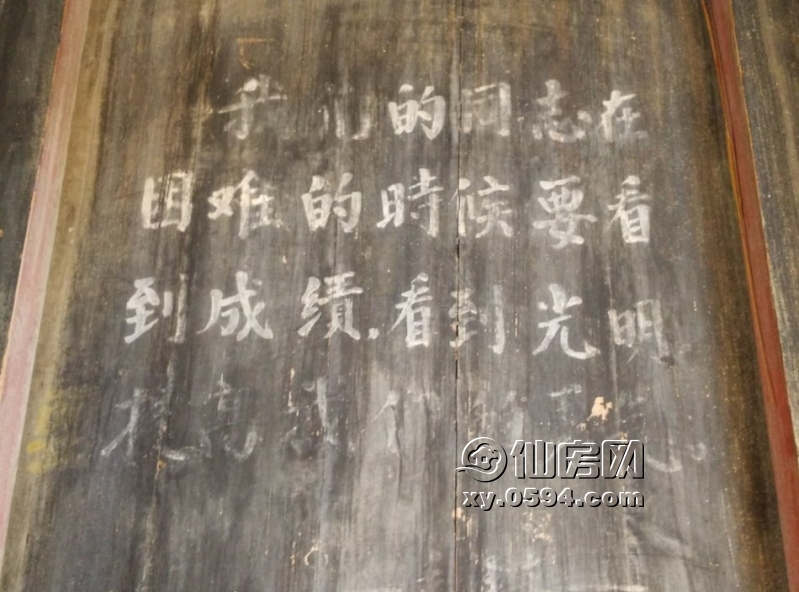 我们的同志在
困难的時候要看
到成绩.看到光明
提高我们的
仙房网
xy.0594.com